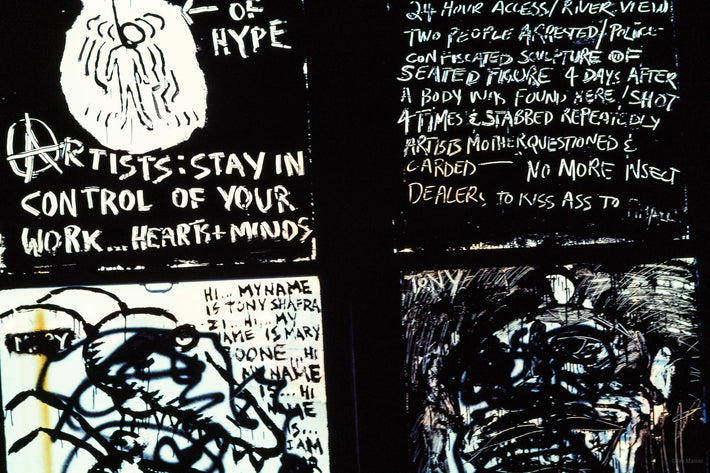 OF
HYPE
ARTISTS: STAY IN
CONTROL OF YOUR
WORK... HEARTS + MINDS
24 HOUR ACCESS/RIVER VIEW
TWO PEOPLE ARRESTED/POLICE-
CONFISCATED SCULPTURE OF
SEATED FIGURE 4 DAYS AFTER
A BODY WAS FOUND HERE/SHOT
4 TIMES & STABBED REPEATEDLY
ARTISTS MOTHER QUESTIONED &
CARDED— NO MORE INSECT
DEALERS TO KISS ASS TO
HI... MY NAME
IS TONY SHAFRA
ZI... HI... MY
NAME IS MARY
BOONE... HI
MY NAME
IS... HI
NAME
IS...
I AM
MARY
TONY